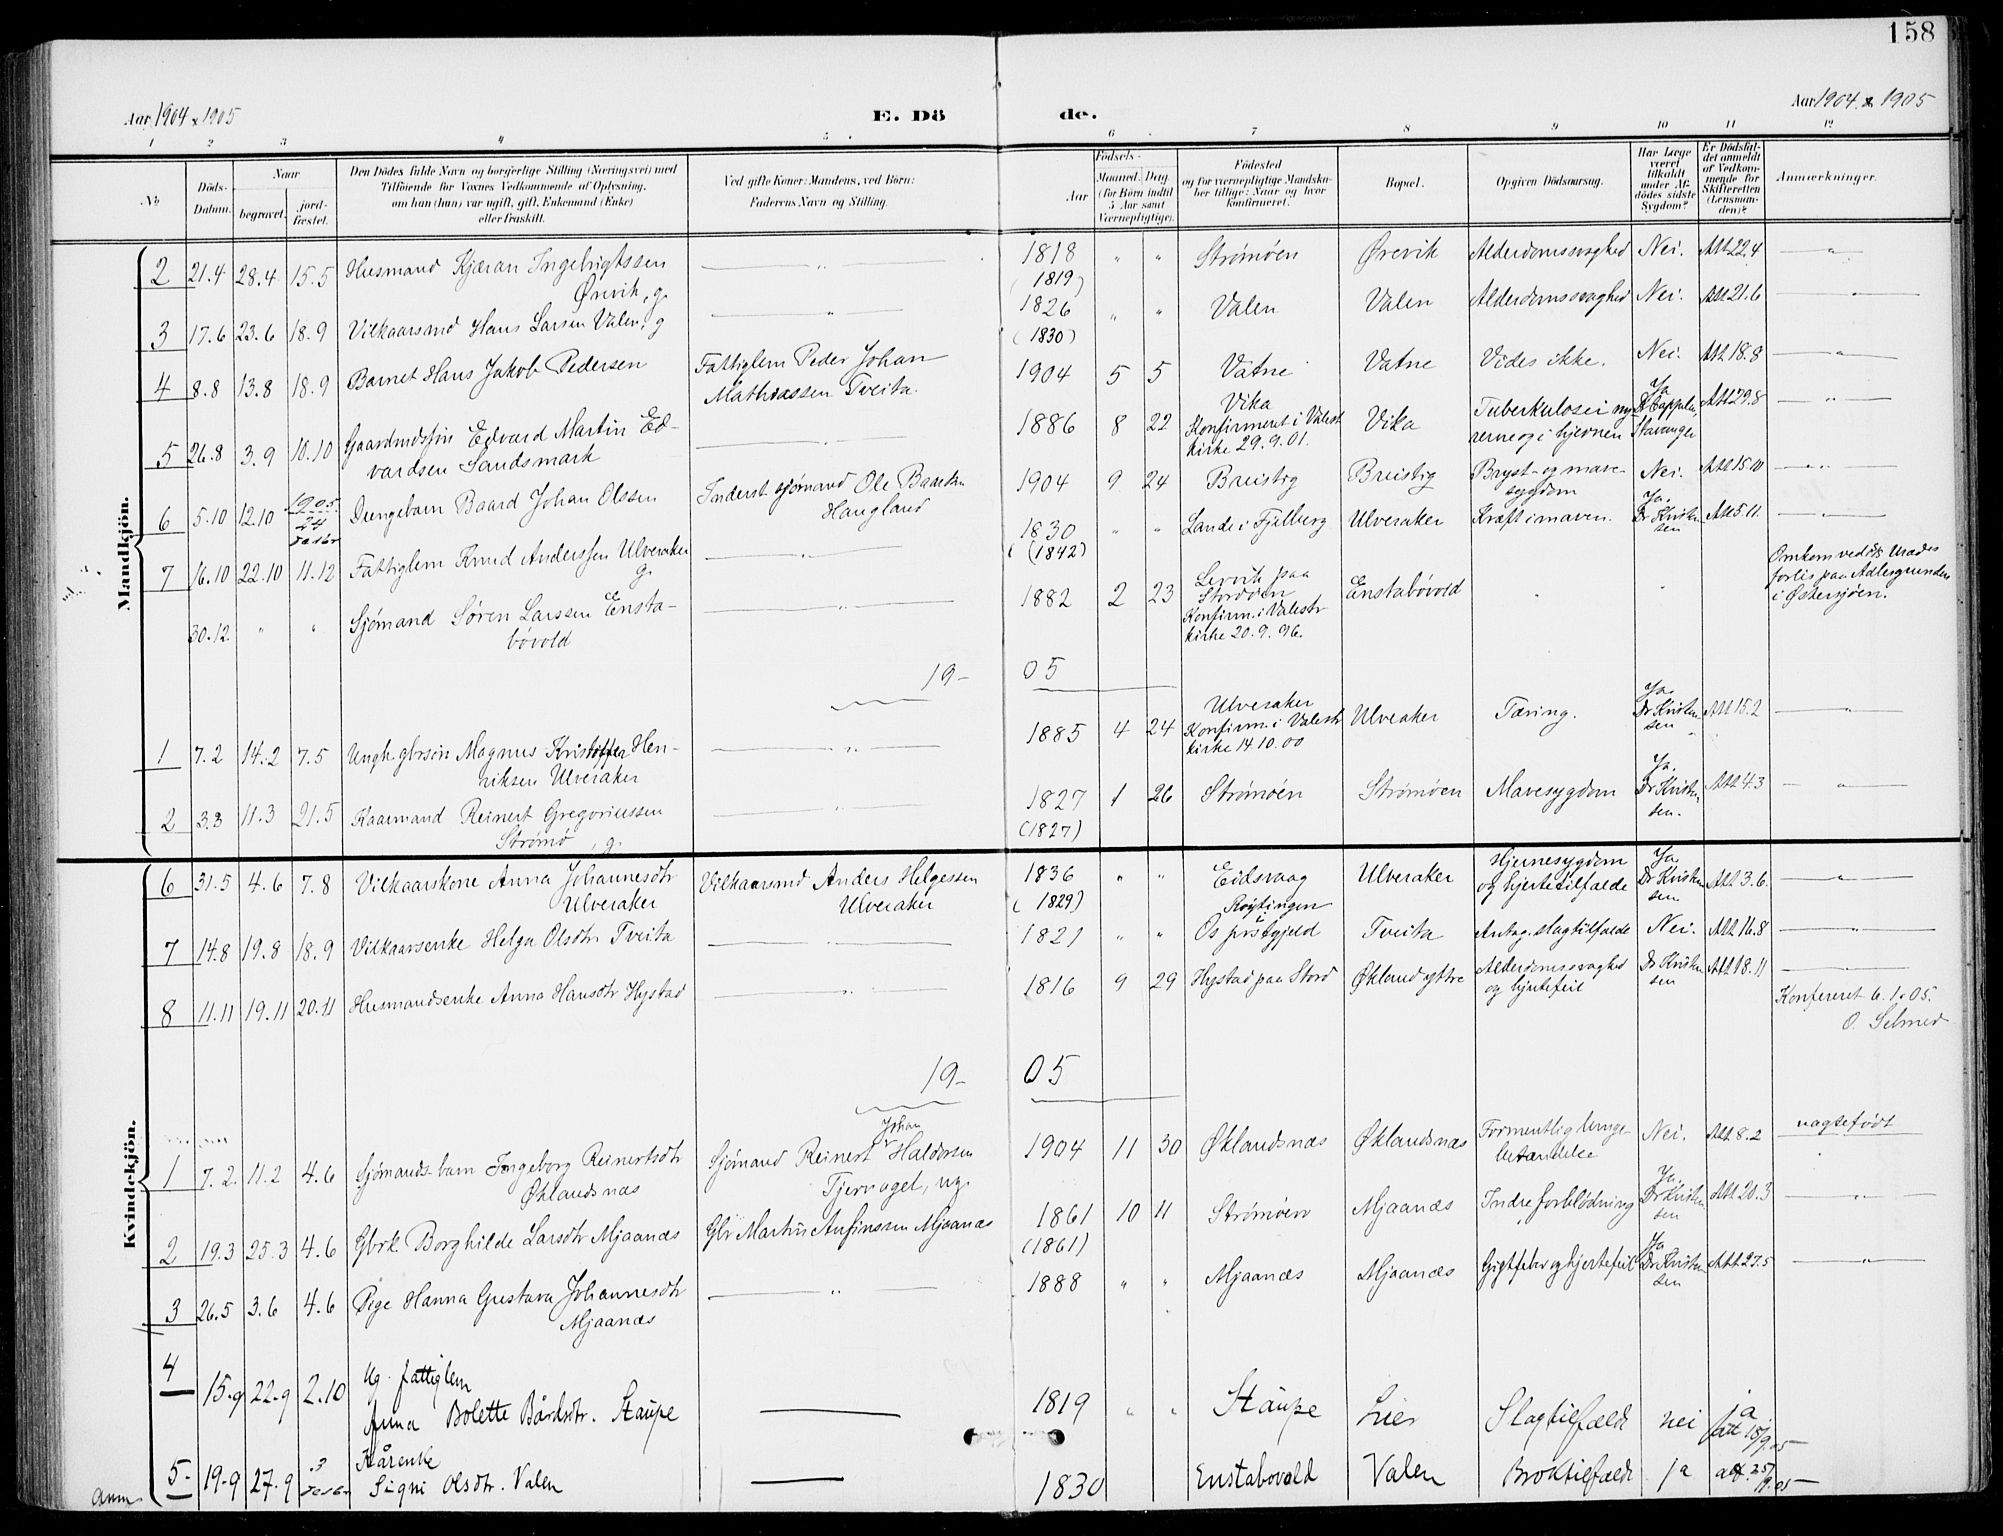 158
Aar 1904 & 1905
E. Dö
de.
Aar 1904 & 1905
1 2 3 4 5 6 7 8 9 10 11 12
No
Döds-
Datum.
Naar
begravet.
jord-
fæstet.
Den Dödes fulde Navn og borgerlige Stilling (Næringsvei) med
Tilföiende for Voxnes Vedkommende af Oplysning,
om han (hun) var ugift, gift, Enkemand (Enke)
eller fraskilt.
Ved gifte Koner: Mandens, ved Börn:
Faderens Navn og Stilling.
Födsels-
Aar
Maaned. Dag.
(for Börn indtil
5 Aar samt
Værnepligtige).
Födested
og for værnepligtige Mandska-
ber tillige: Naar og hvor
konfirmeret.
Bopæl.
Opgiven Dödsaarsag.
Har Læge
været
tilkaldt
under Af-
dödes sidste
Sygdom?
Er Dödsfal-
det anmeldt
af Vedkom-
mende for
Skifteretten
(Lensman-
den)?
Anmærkninger.
Mandkjön.
2 21.4 28.4 15.5 Husmand Kjæran Ingebrigtssen
Ørevik, g. — " — 1818 (1819) " " Strømøen Ørevik Alderdomssvaghed Nei. Att 22.4 — " —
3 17.6 23.6 18.9 Vilkaarsmd Hans Larsen Valen, g — " — 1826 (1830) " " Valen Valen Alderdomssvaghed Nei. Att 21.6 — " —
4 8.8 13.8 18.9 Barnet Hans Jakob Pedersen Fattiglem Peder Johan
Mathiassen Tveita. 1904 5 5 Vatne Vatne Vides ikke. Nei. Att 18.8 — " —
5 26.8 3.9 10.10 Gaardmdssøn Edvard Martin Ed-
vardsen Sandsmark — " — 1886 8 22 Vika
Konfirmeret i Valestr
kirke 29.9.01. Vika Tuberkulose i ny-
rerne og i hjernen Ja
Dr Cappelen,
Stavanger Att 29.8 — " —
6 5.10 12.10 1905.
24 Drengebarn Baard Johan Olssen Inderst sjømand Ole Baardsen
Haugland 1904 9 24 Breistig Breistig Bryst- og mave-
sygdom Nei. Att 15.10 — " —
7 16.10 22.10 11.12 Fattiglem Knud Anderssen Ulveraker
g. — " — 1830 (1842) " " Lande i Fjelberg Ulveraker Kræft i maven. Ja.
Dr Kristen-
sen Att 5.11. — " —
30.12 " " Sjømand Søren Larssen Ensta-
bøvold — " — 1882 2 23 Lervik paa
Stordøen
Konfirm. i Valestr
kirke 20.9.96. Enstabøvold " " Omkom ved
forlis paa Adlersgrunden
i Østersjøen.
19- 05
1 7.2 14.2 7.5 Ungk. gbrsøn Magnus Kristoffer Hen-
riksen Ulveraker — " — 1885 4 24 Ulveraker
Konfirm. i Valestr
kirke 14.10.00 Ulveraker Tæring. Ja
Dr Kristen-
sen Att 15.2 — " —
2 3.3 11.3 21.5 Kaarmand Reinert Gregoriussen
Strømø, g. — " — 1827 (1827) 1 26 Strømøen Strømøen Mavesygdom Ja.
Dr Kristen-
sen. Att 4.3 — " —
Kvindekjön.
6 31.5 4.6 7.8 Vilkaarskone Anna Johannesdtr
Ulveraker Vilkaarsmd Anders Helgessen
Ulveraker 1836 (1829) " " Eidsvaag
Røytingen Ulveraker Hjernesygdom
og hjertetilfælde Ja
Dr Kristen-
sen Att 3.6. — " —
7 14.8 19.8 18.9 Vilkaarsenke Helga Olsdtr Tveita — " — 1821 " " Os prstgjeld Tveita Antag. slagtilfælde Nei. Att 16.8 — " —
8 11.11 19.11 20.11 Husmandsenke Anna Hansdtr Hystad — " — 1816 9 29 Hystad paa Stord Økland ytre Alderdomssvaghed
og hjertefeil Dr Kristen-
sen Att 18.11 — " —
Konfereret 6.1.05.
O. Selmer
19- 05
1 7.2. 11.2 4.6 Sjømands-barn Ingeborg Reinertsdtr
Øklandsnæs Sjømand Reinert Johan Haldorsen
Tjernaget, ug. 1904 11 30 Øklandsnæs Øklandsnæs Formentlig lunge-
betændelse Nei. Att 8.2 uægtefødt
2 19.3 25.3 4.6 Gbrk. Borghilde Larsdtr Mjaanæs Gbr Martin Anfinssen Mjaanæs 1861 (1861) 10 11 Strømøen Mjaanæs Indre forblødning Ja.
Dr Kristen-
sen Att 20.3 — " —
3 26.5 3.6 4.6 Pige Hanna Gustava Johannesdtr
Mjaanæs — " — 1888 " " Mjaanæs Mjaanæs Gigtfeber og hjertefeil Ja
Dr Kristen-
sen Att 27.5 — " —
4 15.9 22.9 2.10 Ug. fattiglem
Anna Bolette Bårdsdtr. Staupe — 1819 " " Staupe Lier Slagtilfælde nei ja
att 18/9 05
5 19.9 27.9 Kårenke
Signi Olsdtr. Valen — 1830 Enstabovold Valen Broktilfælde ja att. 25/9.05
anm